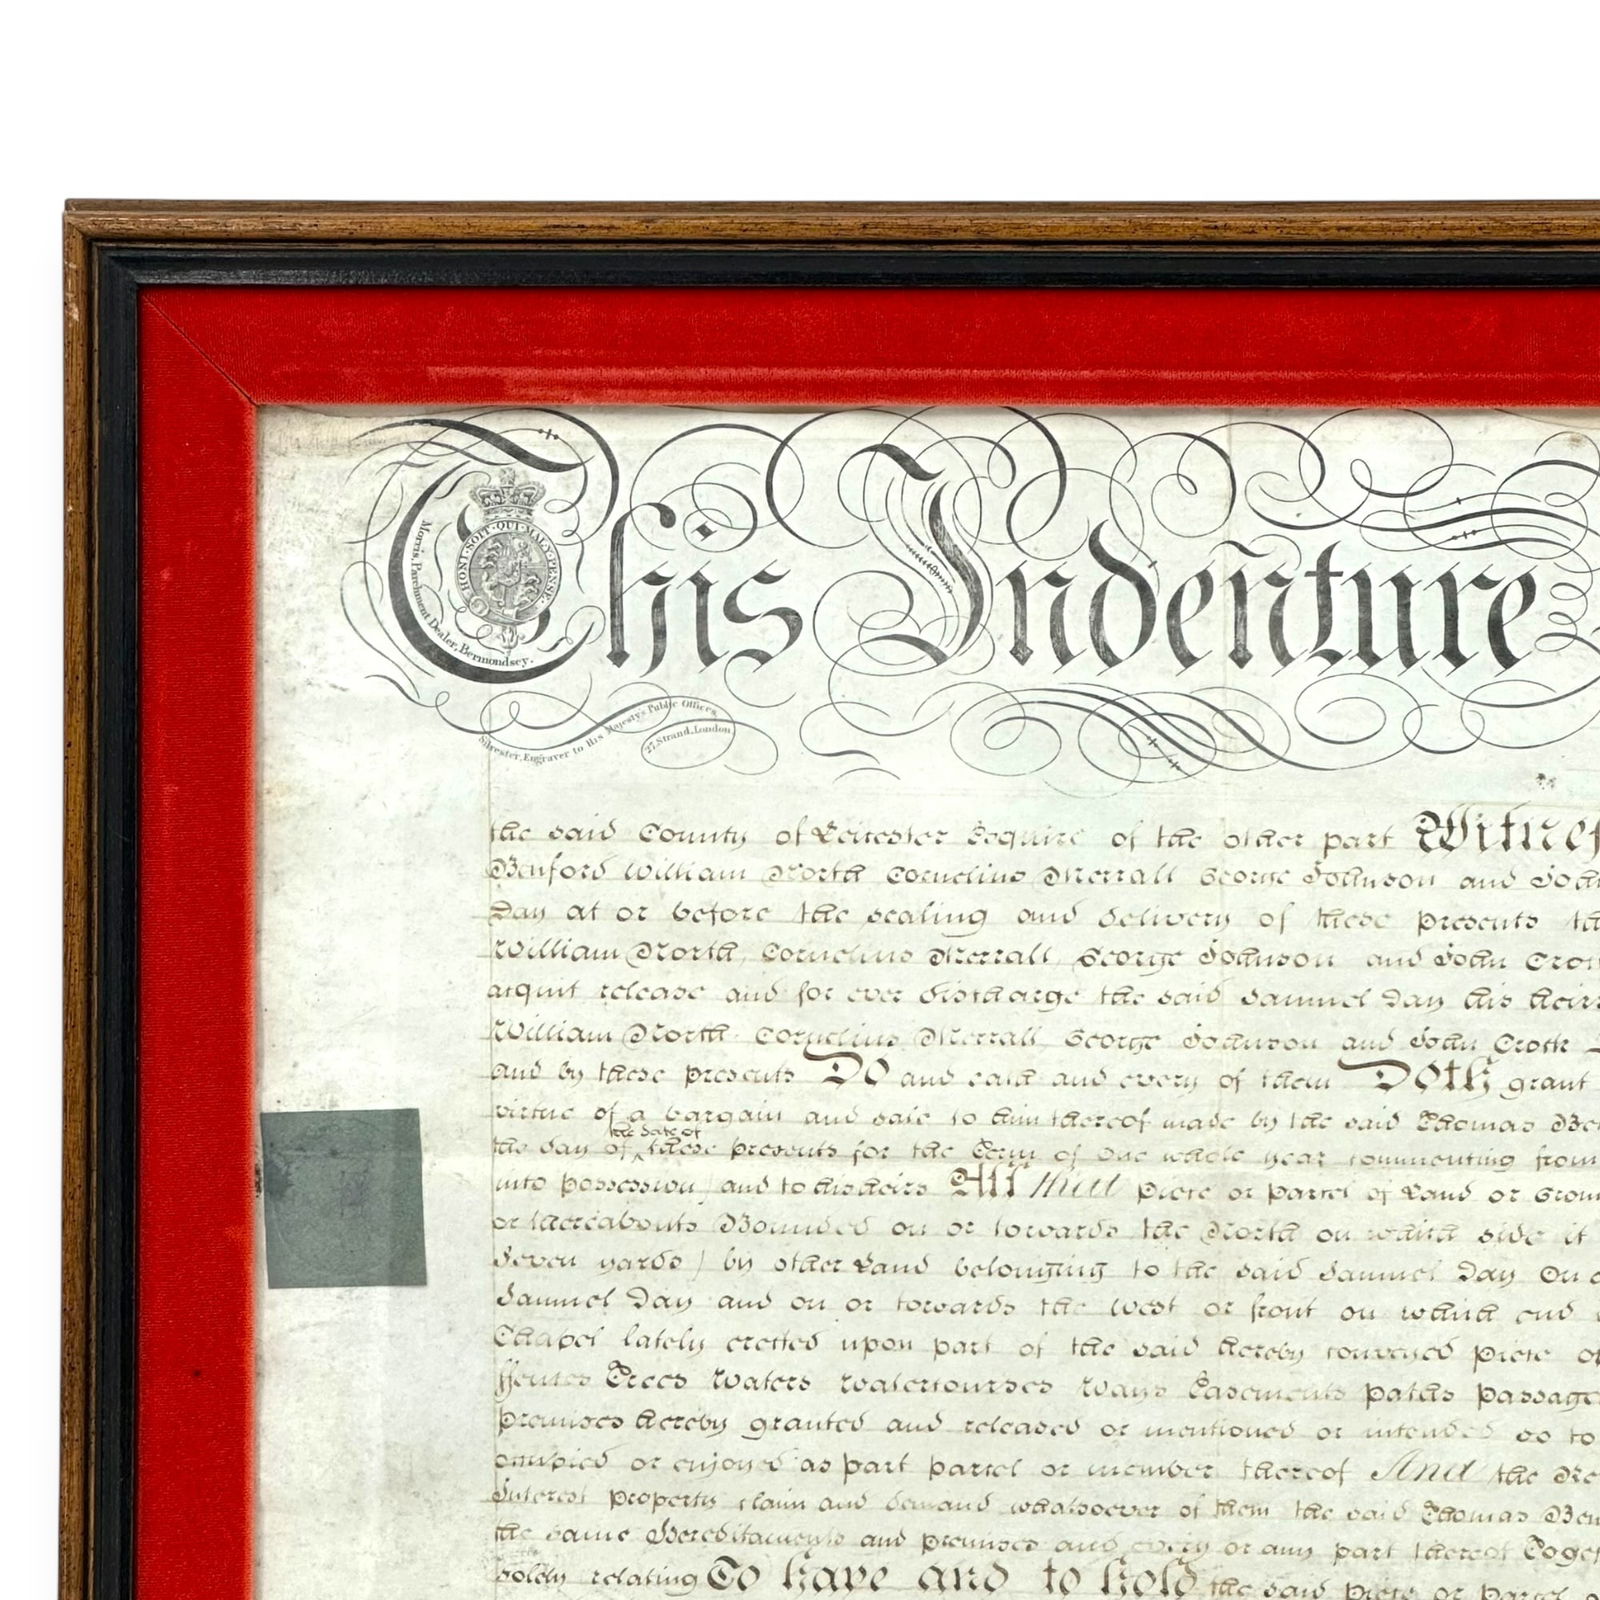 This Indenture
HONI·SOIT·QUI·MAL·Y·PENSE·
Morris, Parchment Dealer, Bermondsey.
Silvester, Engraver to His Majesty's Public Offices,
27, Strand, London
the said County of Leicester Esquire of the other part
Benford William North Cornelius Merrall George Johnson and
Day at or before the sealing and delivery of these presents
William North Cornelius Merrall George Johnson and John
acquit release and for ever discharge the said Samuel Day his heirs
William North Cornelius Merrall George Johnson and John
and by these presents Do and each and every of them Doth grant
virtue of a bargain and sale to him thereof made by the said Thomas
the date of
the day of these presents for the Term of one whole year commencing from
into possession and to his heirs All that piece or parcel of Land or
or thereabouts Bounded on or towards the North on which side it
Seven yards) by other Land belonging to the said Samuel Day On
Samuel Day and on or towards the West or front on which end
Chapel lately erected upon part of the said hereby conveyed piece
ffences Trees Waters Watercourses Ways Easements paths
premises hereby granted and released or mentioned or intended so to
occupied or enjoyed as part parcel or member thereof And the
Interest property claim and demand whatsoever of them the said Thomas
the same Hereditaments and premises and every or any part thereof
solely relating To have and to hold the said piece or parcel